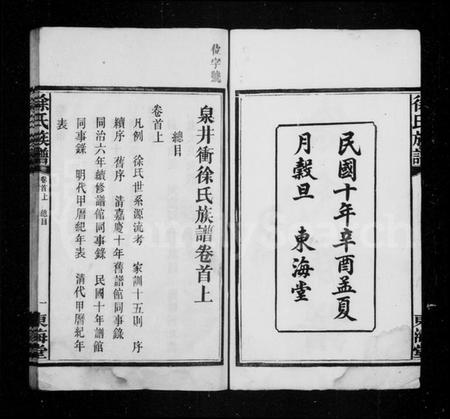 徐氏族譜
東海堂
民國十年辛酉孟夏
月穀旦 東海堂
位字號
泉井衝徐氏族譜卷首上
總目
卷首上
凡例 徐氏世系源流考 家訓十五則 序
續序 舊序 清嘉慶十年舊譜館同事錄
同治六年續修譜館同事錄 民國十年譜館
同事錄 明代甲曆紀年表 清代甲曆紀年
表
徐氏族譜
卷首上 總目
一
東海堂